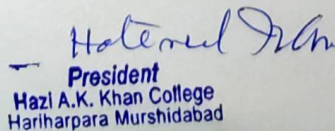 President
Hazi A.K. Khan College
Hariharpara Murshidabad